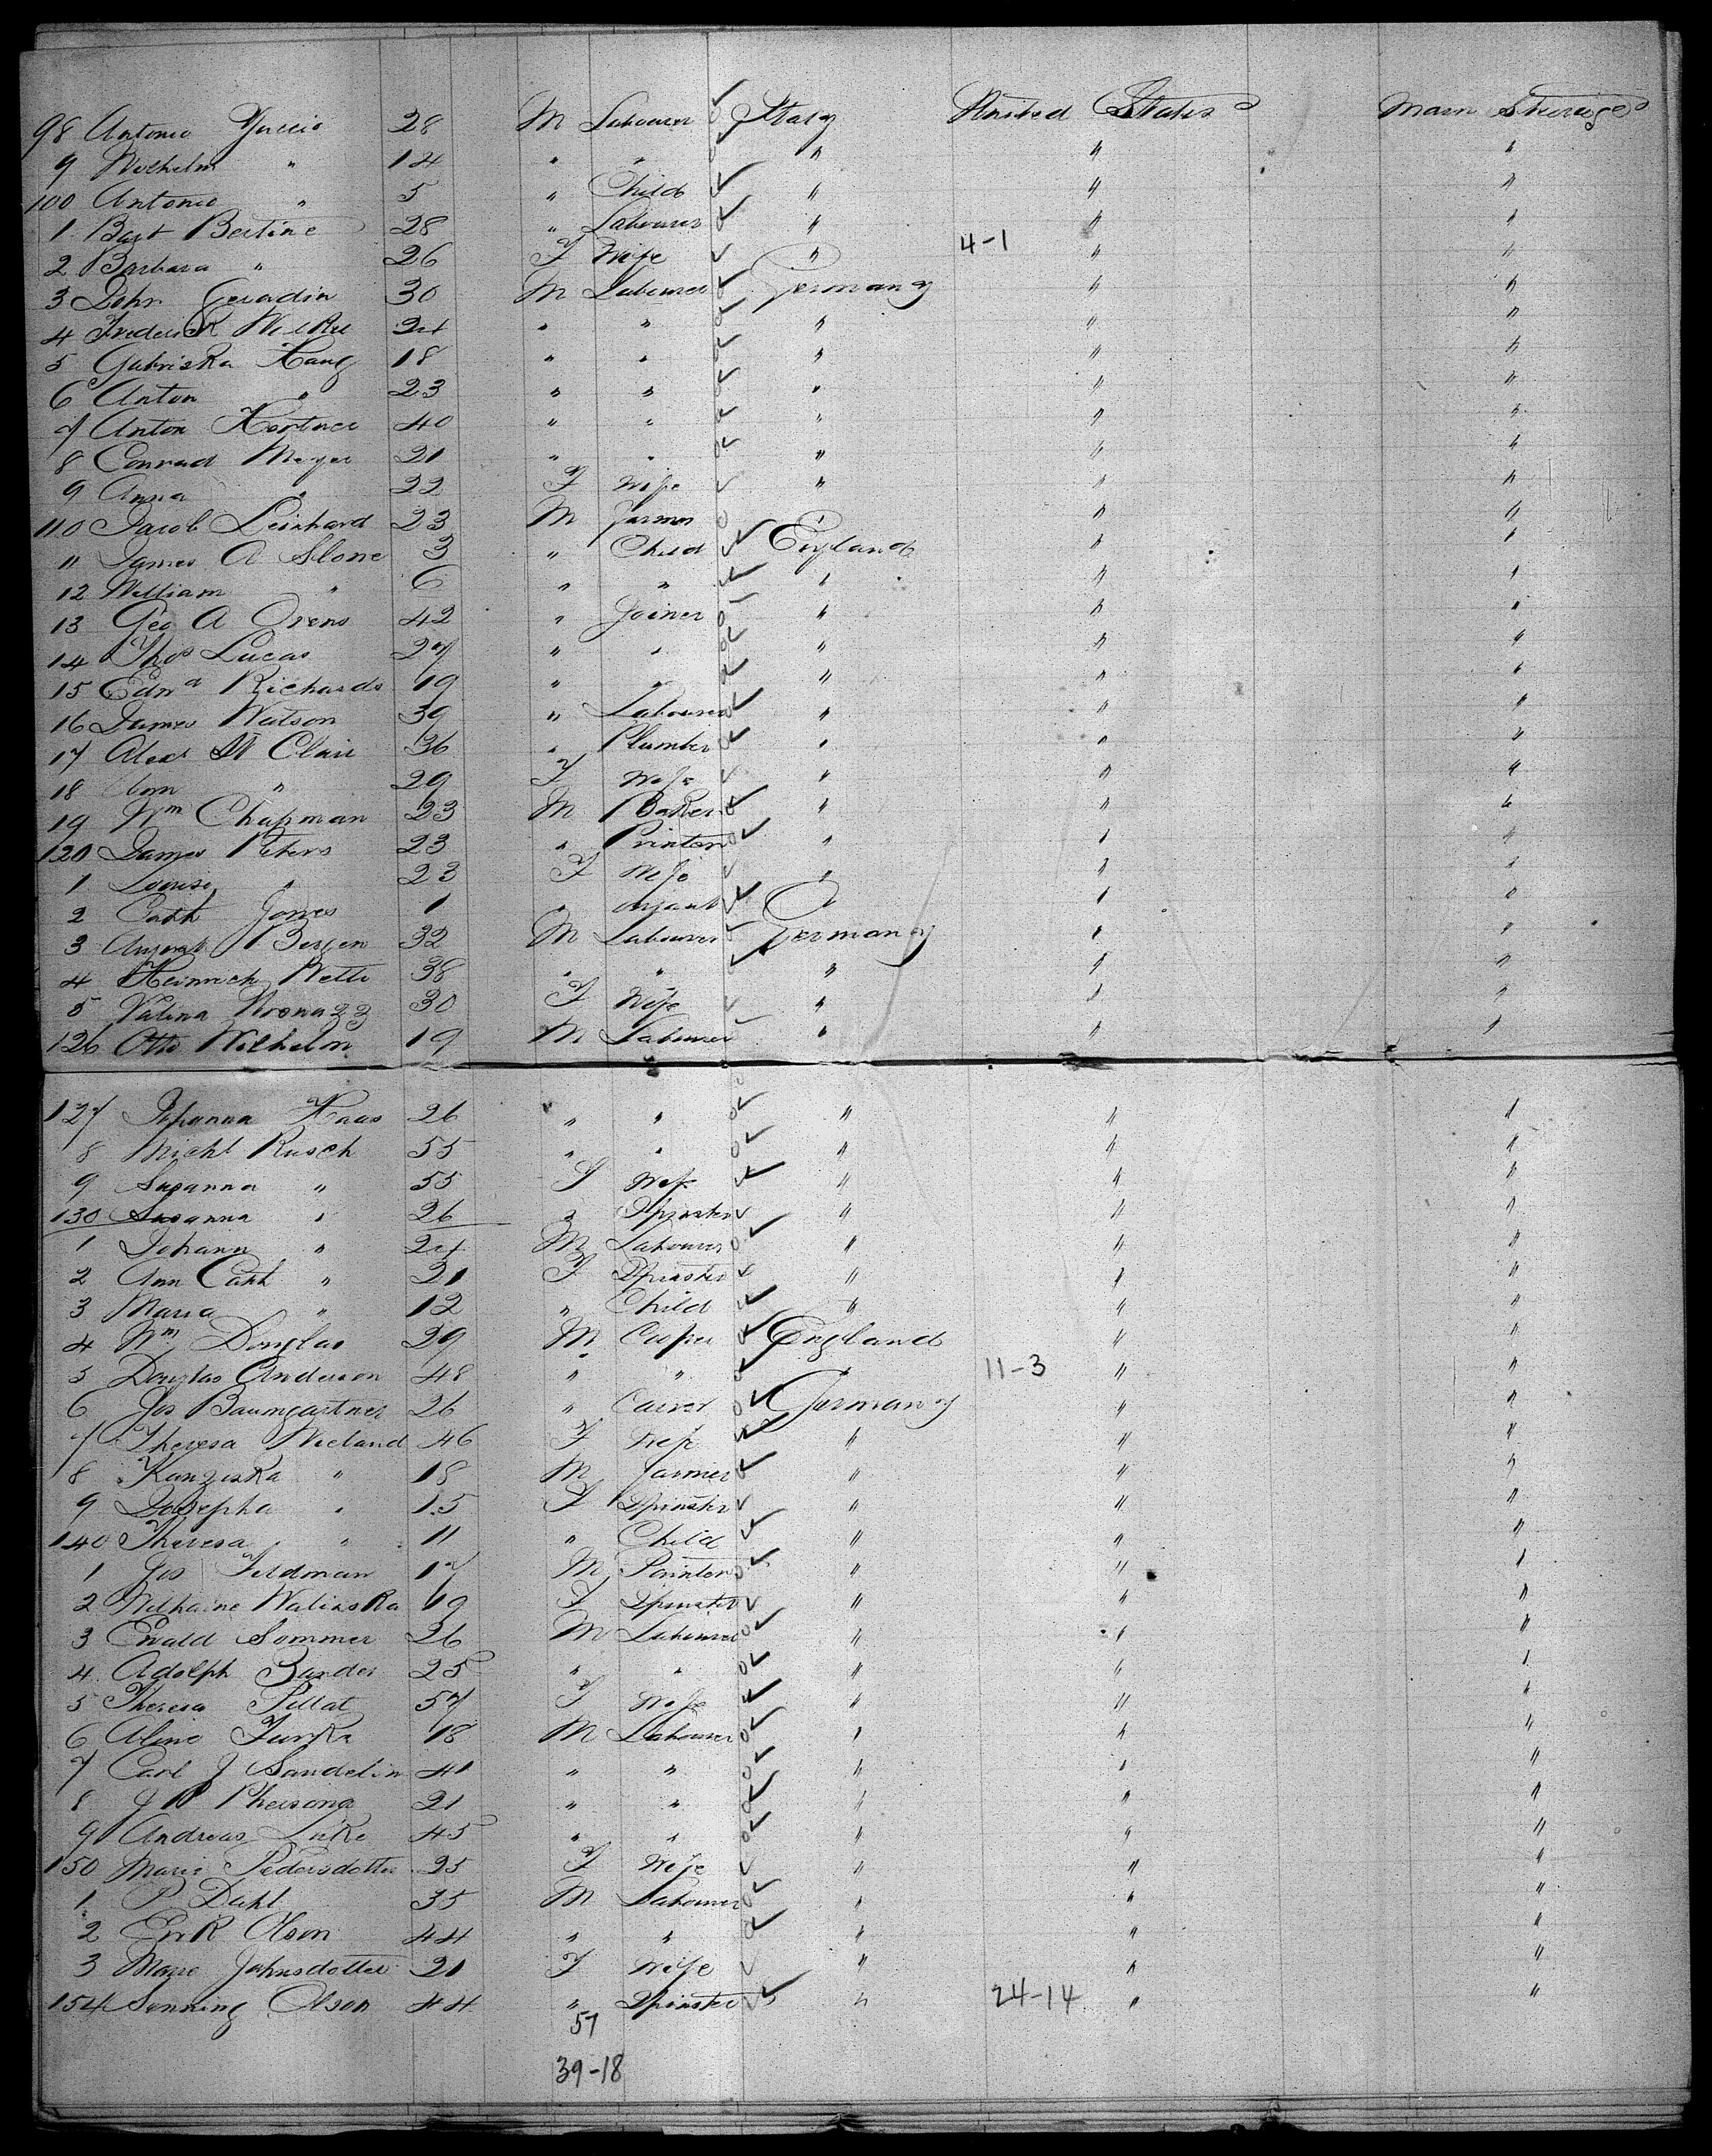 98 Antonio Yuccio 28 M Labourer Italy United States Main Steerage
9 Wilhelm " 14 " " " " "
100 Antonio " 5 " Child " " "
1 Bart Bertine 28 " Labourer " " "
2 Barbara " 26 F Wife " 4-1 " "
3 John Geradin 30 M Labourer Germany " "
4 Frederick 24 " " " " "
5 Haug 18 " " " " "
6 Anton " 23 " " " " "
7 Anton 40 " " " " "
8 Conrad Meyer 21 " " " " "
9 Anna " 22 F Wife " " "
110 Jacob Leinhard 23 M Farmer " " "
11 James A Slone 3 " Child England " "
12 William " 6 " " " " "
13 Geo A Orens 42 " Joiner " " "
14 Thos Lucas 27 " " " " "
15 Edwd Richards 19 " " " " "
16 James Watson 39 " Labourer " " "
17 Alex St Clair 36 " Plumber " " "
18 Ann " 29 F Wife " " "
19 Wm Chapman 23 M Baker " " "
120 James Peters 23 " Printer " " "
1 Louisa " 23 F Wife " " "
2 Cath Jones 1 " Infant " " "
3 August Bergen 32 M Labourer Germany " "
4 Heinrich Wette 38 " " " " "
5 30 F Wife " " "
126 Otto Wilhelm 19 M Labourer " " "
127 Johanna Haas 26 " " " " "
8 Michl Rusch 55 " " " " "
9 Susanna " 55 F Wife " " "
130 Susanna " 26 " Spinster " " "
1 Johann " 24 M Labourer " " "
2 Ann Cath " 21 F Spinster " " "
3 Maria " 12 " Child " " "
4 Wm Douglas 29 M Cooper England " "
5 Douglas Anderson 48 " " " 11-3 " "
6 Jos Baumgartner 26 " Carver Germany " "
7 Theresa Wieland 46 F Wife " " "
8 Kanziska " 18 M Farmer " " "
9 Josepha " 15 F Spinster " " "
140 Theresa " 11 " Child " " "
1 Jos Feldman 17 M Painter " " "
2 Walinska 19 F Spinster " " "
3 Ewald Sommer 26 M Labourer " " "
4 Adolph Bander 25 " " " " "
5 Theresa Pillat 57 F Wife " " "
6 Aline 18 M Labourer " " "
7 Carl J Sandelin 41 " " " " "
8 J P Phersona 21 " " " " "
9 Andreas Luke 45 " " " " "
150 Maria Pedersdotter 25 F Wife " " "
1 P Dahl 35 M Labourer " " "
2 Erik Olson 44 " " " " "
3 Marie Johnsdotter 21 F Wife " " "
154 Olson 44 " Spinster " 24-14 " "
57
39-18